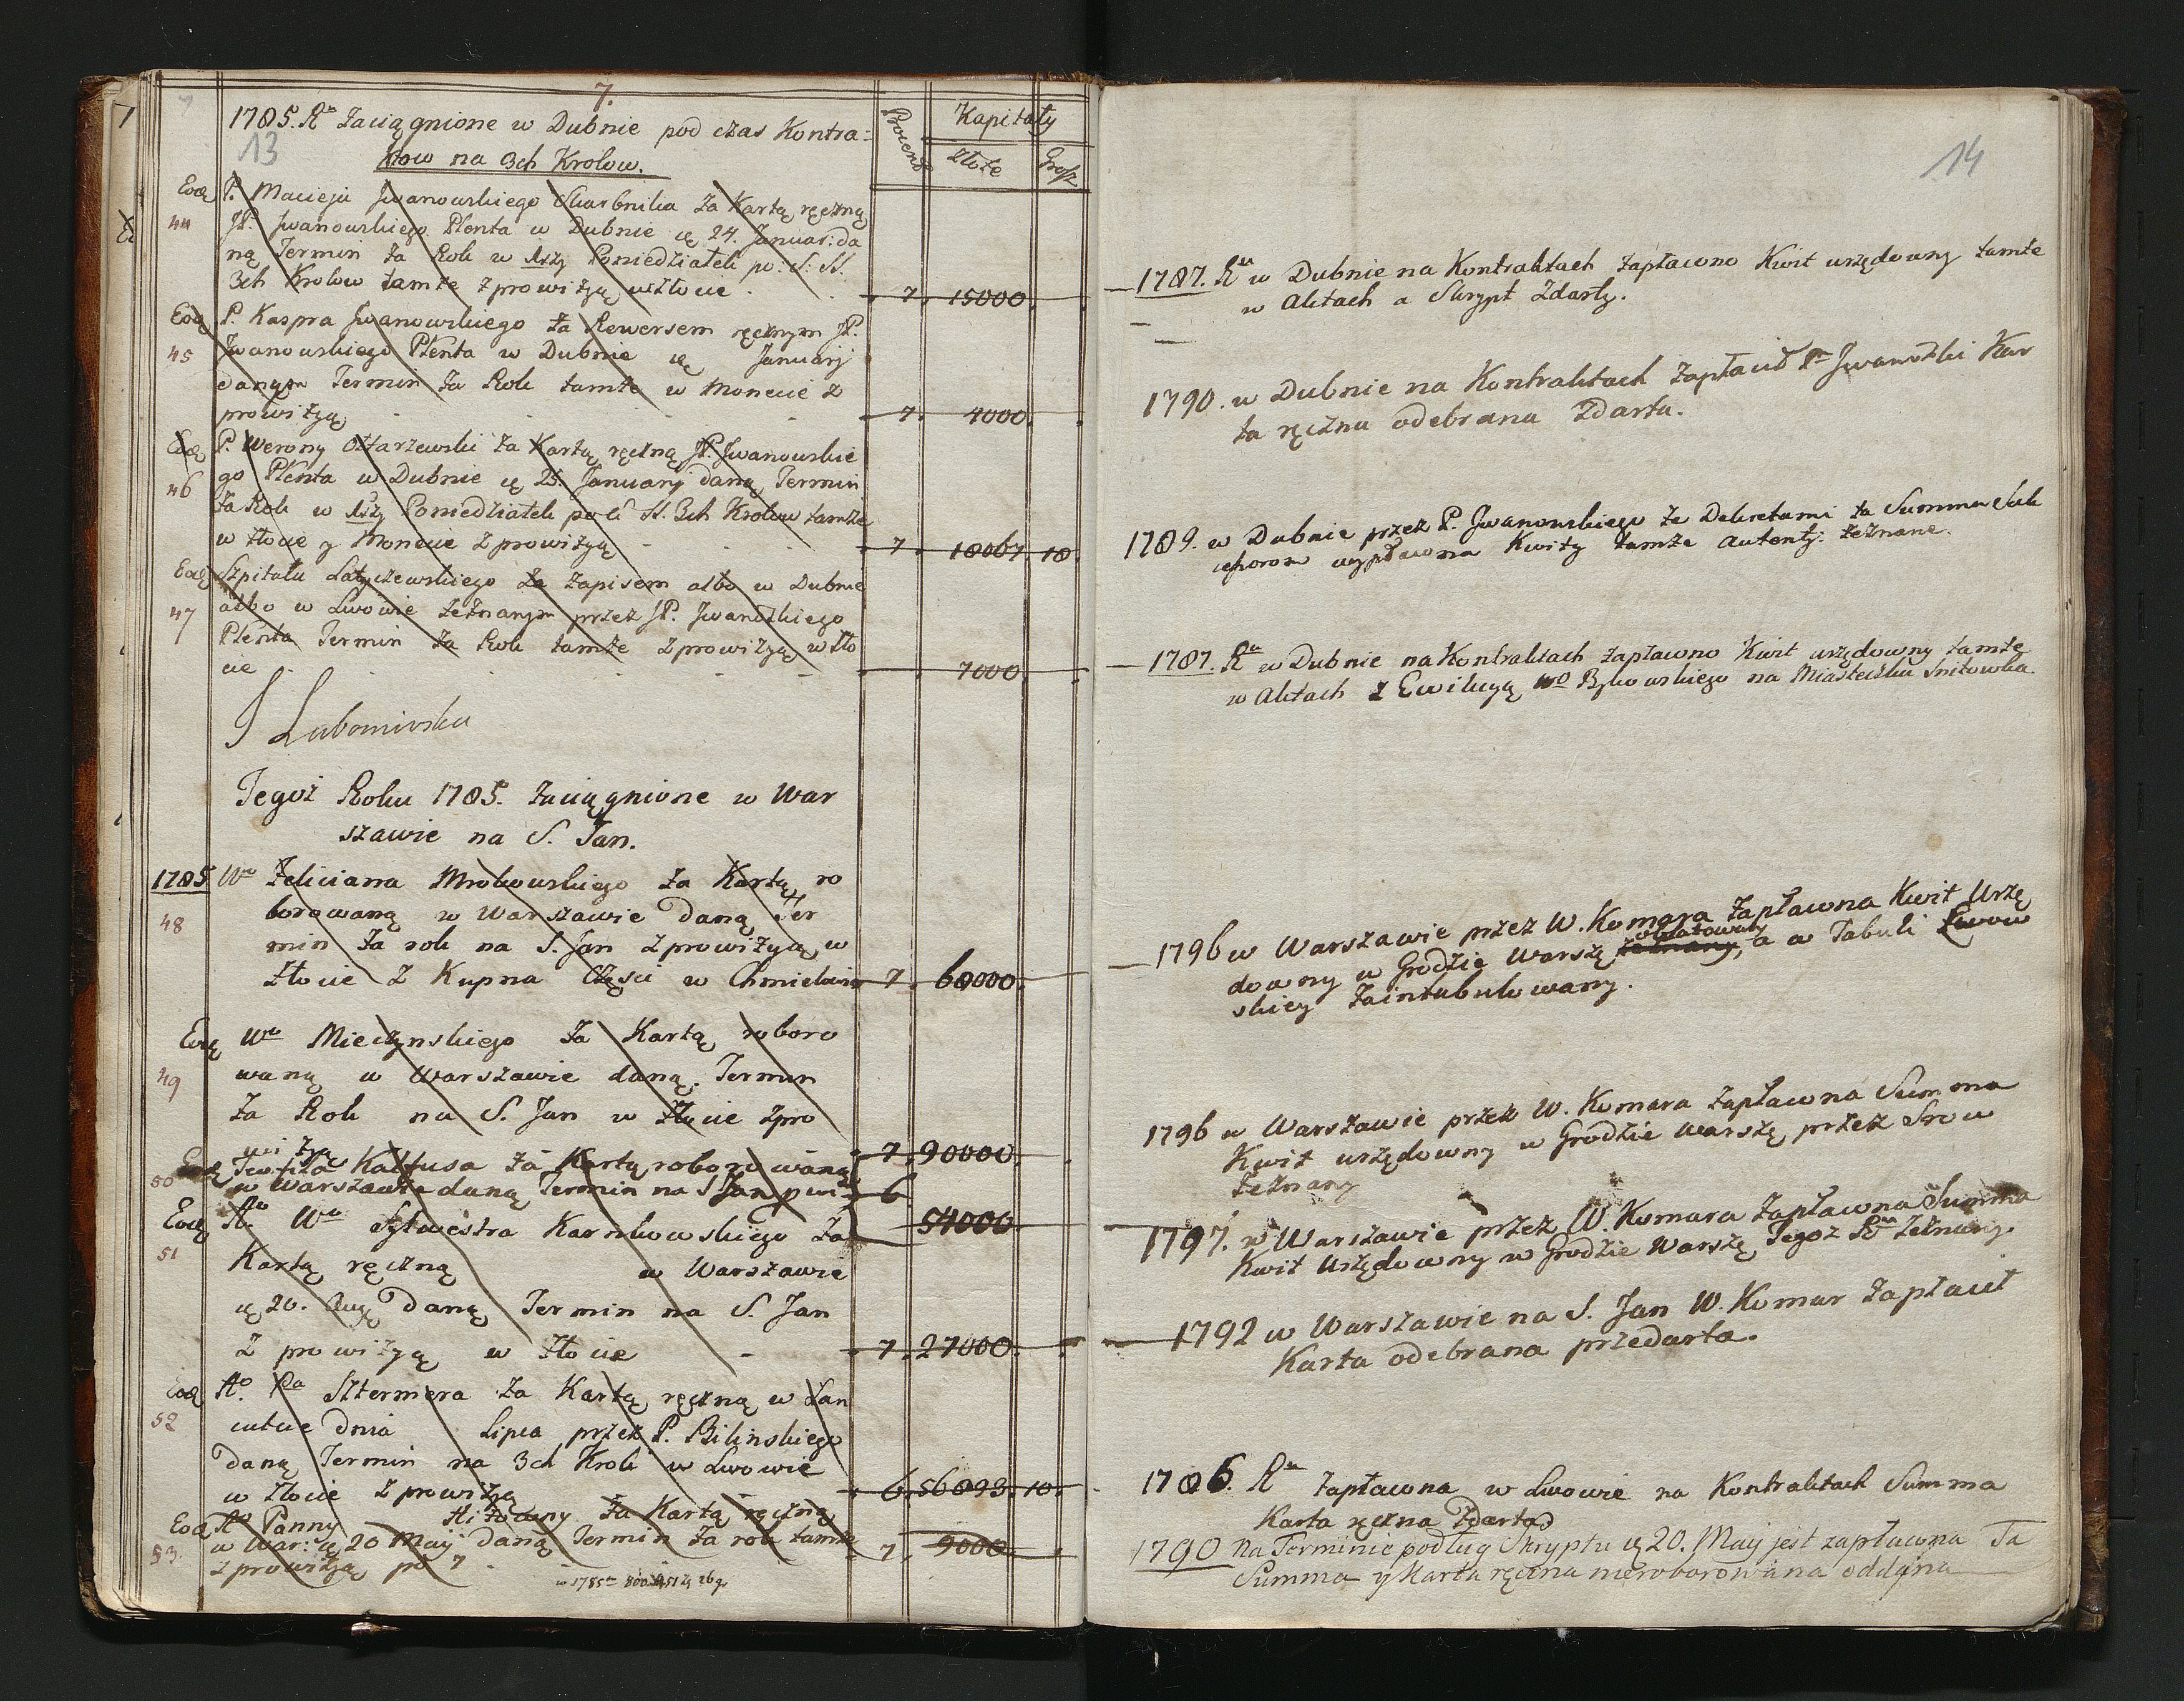 7.
7
13
1785. Ru Zaciągnione w Dubnie pod czas Kontra=
ktow na 3ch Krolow.
Procent
Kapitały
Złote
Grosz
Eod
44
P. Macieja Jwanowskiego Skarbnika za Kartą ręczną
JP. Jwanowskiego Plenta w Dubnie 24. Januar: da
ną Termin za Rok w 1szy Poniedziałek po: S: SS.
3ch Krolow tamże z prowizyą w złocie
7. 15000.
Eod
45
P. Kaspra Jwanowskiego za Rewersem ręcznym JP.
Jwanowskiego Plenta w Dubnie Januarij
danym Termin za Rok tamże w Monecie z
prowizyą
7. 4000.
Eod
46
P. Werony Ołtarzewski za Kartą ręczną JP. Jwanowskie
go Plenta w Dubnie 25. Januarij daną Termin
za Rok w 1szy Poniedziałek po SS. 3ch Krolow tamże
w złocie y Monecie z prowizyą
7. 18067. 10.
Eod
47
Szpitalu Latyczewskiego za zapisem albo w Dubnie
albo w Lwowie zeznanym przez JP. Jwanowskiego
Plenta Termin za Rok tamże z prowizyą w zło
cie
7000
J Lubomirska
Tegoż Roku 1785. zaciągnione w War
szawie na S. Jan.
1785
48
Wo Feliciana Mrokowskiego za Kartą ro
borowaną w Warszawie daną Ter
min za rok na S. Jan z prowizyą w
złocie z Kupna Części w Chmielowie
7. 60000.
Eod
49
Wo Mieczynskiego za Kartą roboro
waną w Warszawie daną. Termin
za Rok na S. Jan w złocie z pro
wizyą
7. 90000.
50
Teofila Kaltusa za Kartą roborowaną
w Warszawie daną Termin na S Jan
6
54000.
Eod
51
Ao Wo Sylwestra Karnkowskiego za
Kartą ręczną w Warszawie
20. Aug daną Termin na S. Jan
z prowizyą w złocie
7. 27000.
Eod
52
Ao. Pa Sztermera za Kartą ręczną w Łan
cucie dnia Lipca przez P. Bilinskiego
daną Termin na 3ch Kroli w Lwowie
w złocie z prowizyą
6. 56893. 10.
Eod
53.
Ao Panny za Kartą ręczną
w War: 20 Maij daną Termin za rok tamże
z prowizyą po 7
7. 9000.
14
1787. Ru w Dubnie na Kontraktach zapłacono Kwit urzędowny tamże
w Aktach a Skrypt zdarty.
1790. w Dubnie na Kontraktach zapłacił Pn Jwanowski Kar
ta ręczna odebrana zdarta.
1789. w Dubnie przez P. Jwanowskiego ze Dekretami ta Summa Suk
cessorom wypłacona Kwity tamże autenty: zeznane.
1787. Ru w Dubnie na Kontraktach zapłacono Kwit urzędowny tamże
w Aktach z Ewikcyą Wo Bykowskiego na Miasteczku Snitowka.
1796 w Warszawie przez W. Komara zapłacona Kwit Urzę
downy w Grodzie Warsz: oblatowany, a w Tabuli Lwow
skiey zaintabulowany.
1796 w Warszawie przez W. Komara zapłacona Summa
Kwit urzędowny w Grodzie Warsz: przez
zeznany
1797. w Warszawie przez W. Komara zapłacona Summa
Kwit Urzędowny w Grodzie Warsz: Tegoz Ru zeznany.
1792 w Warszawie na S. Jan W. Komar zapłacił
Karta odebrana przedarta.
1786. Ru zapłacona w Lwowie na Kontraktach Summa
Karta ręczna zdarta
1790 Na Terminie podług Skryptu 20. Maij jest zapłacona Ta
Summa y Karta ręczna nieroborowana oddana